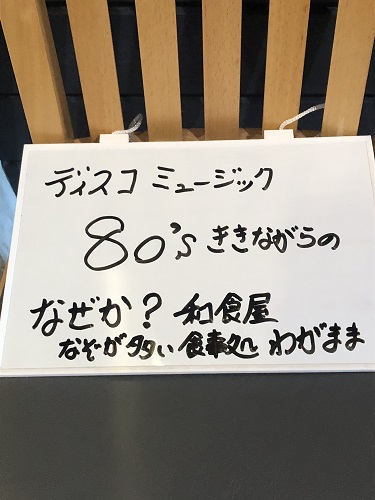 ディスコ ミュージック
80's ききながらの
なぜか? 和食屋
なぞが多い 食事処 わがまま